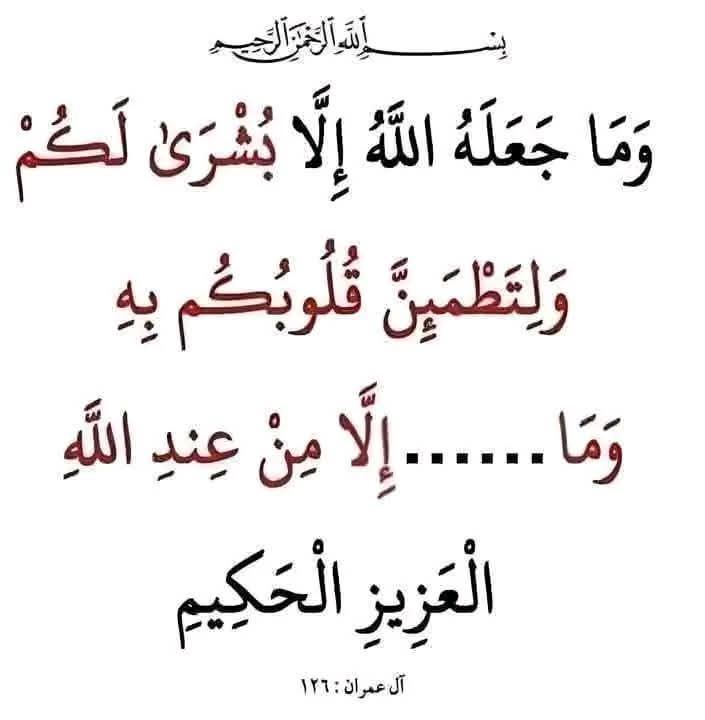 بِسْمِ ٱللَّهِ ٱلرَّحْمَٰنِ ٱلرَّحِيمِ
وَمَا جَعَلَهُ اللَّهُ إِلَّا بُشْرَىٰ لَكُمْ
وَلِتَطْمَئِنَّ قُلُوبُكُم بِهِ
وَمَا ...... إِلَّا مِنْ عِندِ اللَّهِ
الْعَزِيزِ الْحَكِيمِ
آل عمران : ١٢٦